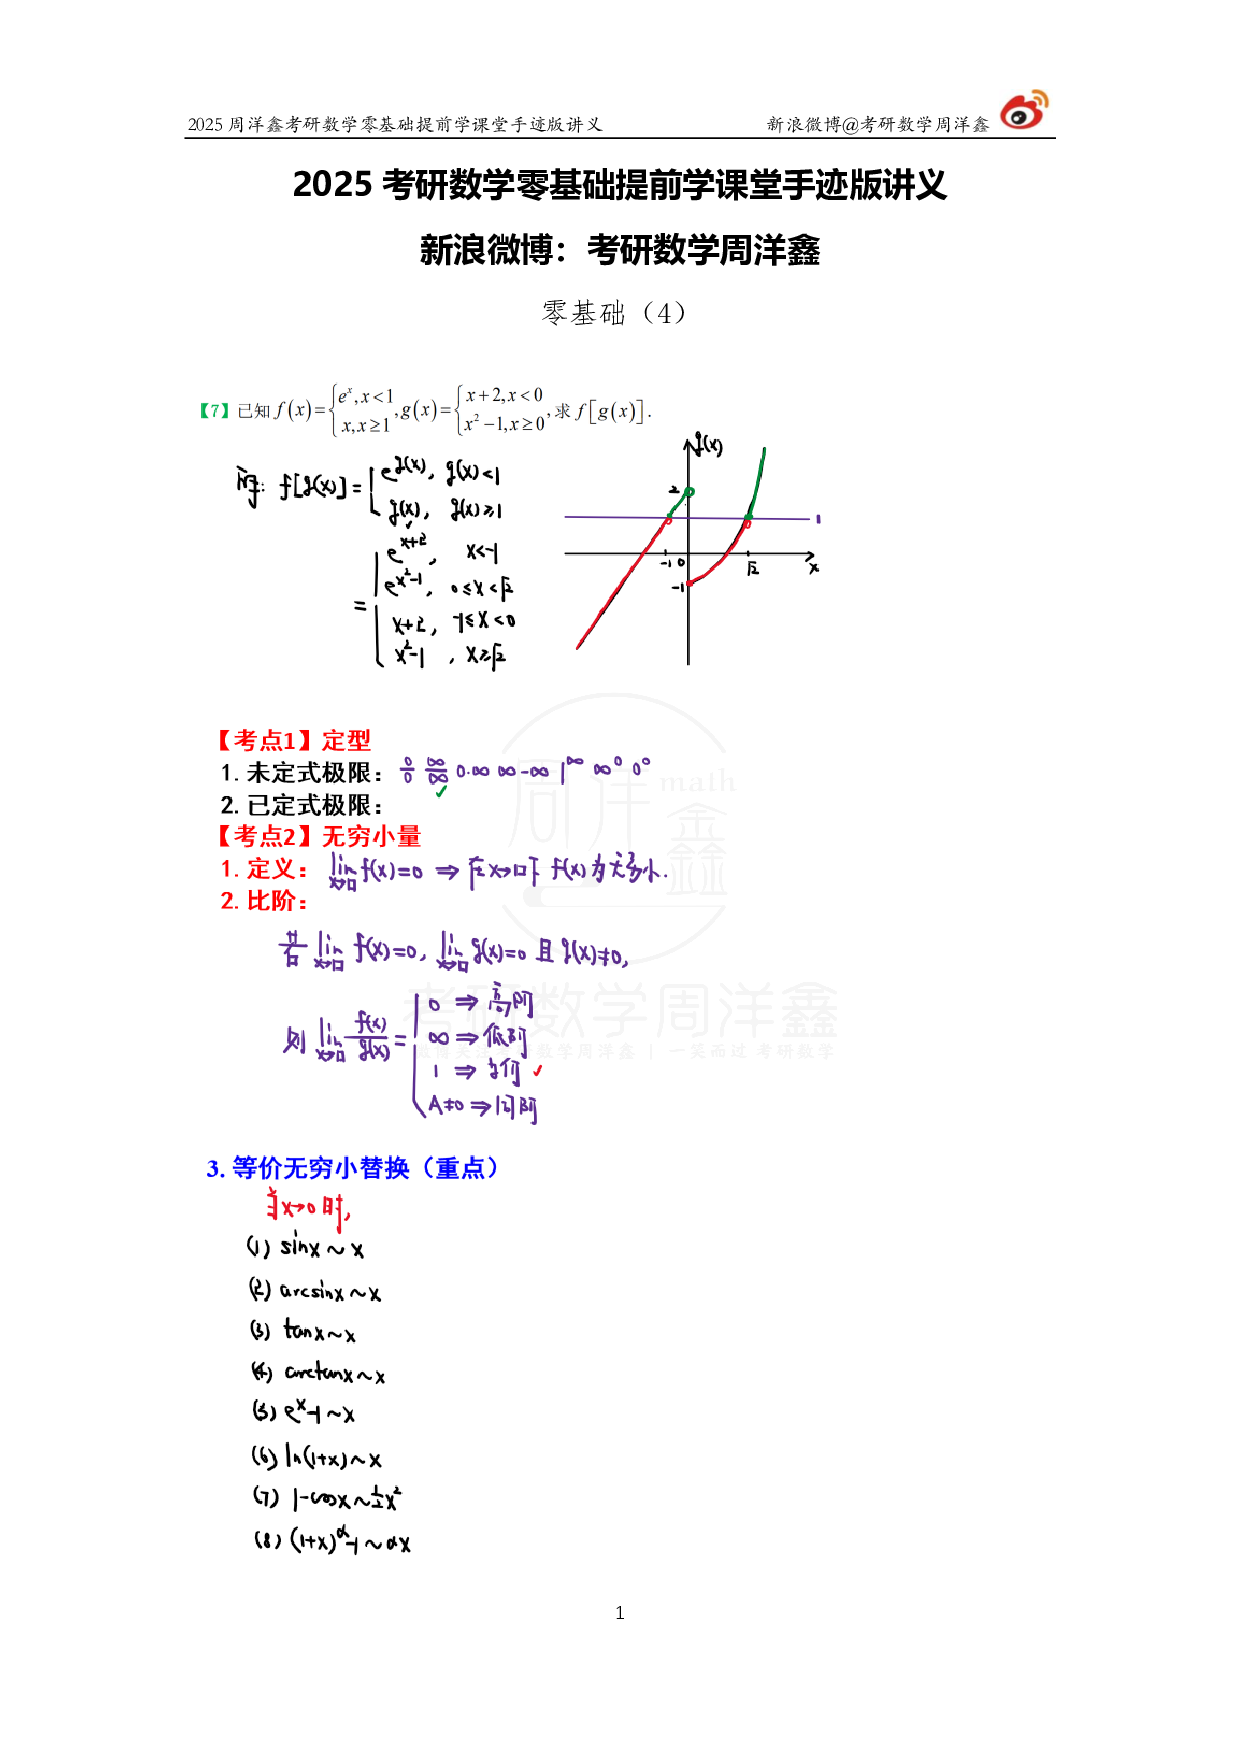 2025周洋鑫考研数学零基础提前学课堂手迹版讲义 新浪微博@考研数学周洋鑫
2025 考研数学零基础提前学课堂手迹版讲义
新浪微博：考研数学周洋鑫
零基础（4）
【7】已知 f(x)={e^x, x<1; x, x≥1, g(x)={x+2, x<0; x²−1, x≥0, 求 f[g(x)].
解: f[g(x)] = {e^{g(x)}, g(x)<1
g(x), g(x)≥1
= {e^{x+2}, x<-1
e^{x²-1}, 0≤x<√2
x+2, -1≤x<0
x²-1, x≥√2
g(x)
2
1
-1 0 √2 x
-1
【考点1】定型
1. 未定式极限： 0/0 ∞/∞ 0·∞ ∞-∞ 1^∞ ∞^0 0^0
2. 已定式极限：
【考点2】无穷小量
1. 定义： lim_{x→□} f(x)=0 ⇒ 在x→□下 f(x)为无穷小.
2. 比阶：
若 lim_{x→□} f(x)=0, lim_{x→□} g(x)=0 且 g(x)≠0,
则 lim_{x→□} f(x)/g(x) = {0 ⇒ 高阶
∞ ⇒ 低阶
1 ⇒ 等价 ✓
A≠0 ⇒ 同阶
3. 等价无穷小替换（重点）
当x→0时,
(1) sinx ~ x
(2) arcsinx ~ x
(3) tanx ~ x
(4) arctanx ~ x
(5) e^x-1 ~ x
(6) ln(1+x) ~ x
(7) 1-cosx ~ ½x²
(8) (1+x)^α-1 ~ αx
周洋鑫 math
考研数学周洋鑫
微博关注考研数学周洋鑫 | 一笑而过 考研数学
1